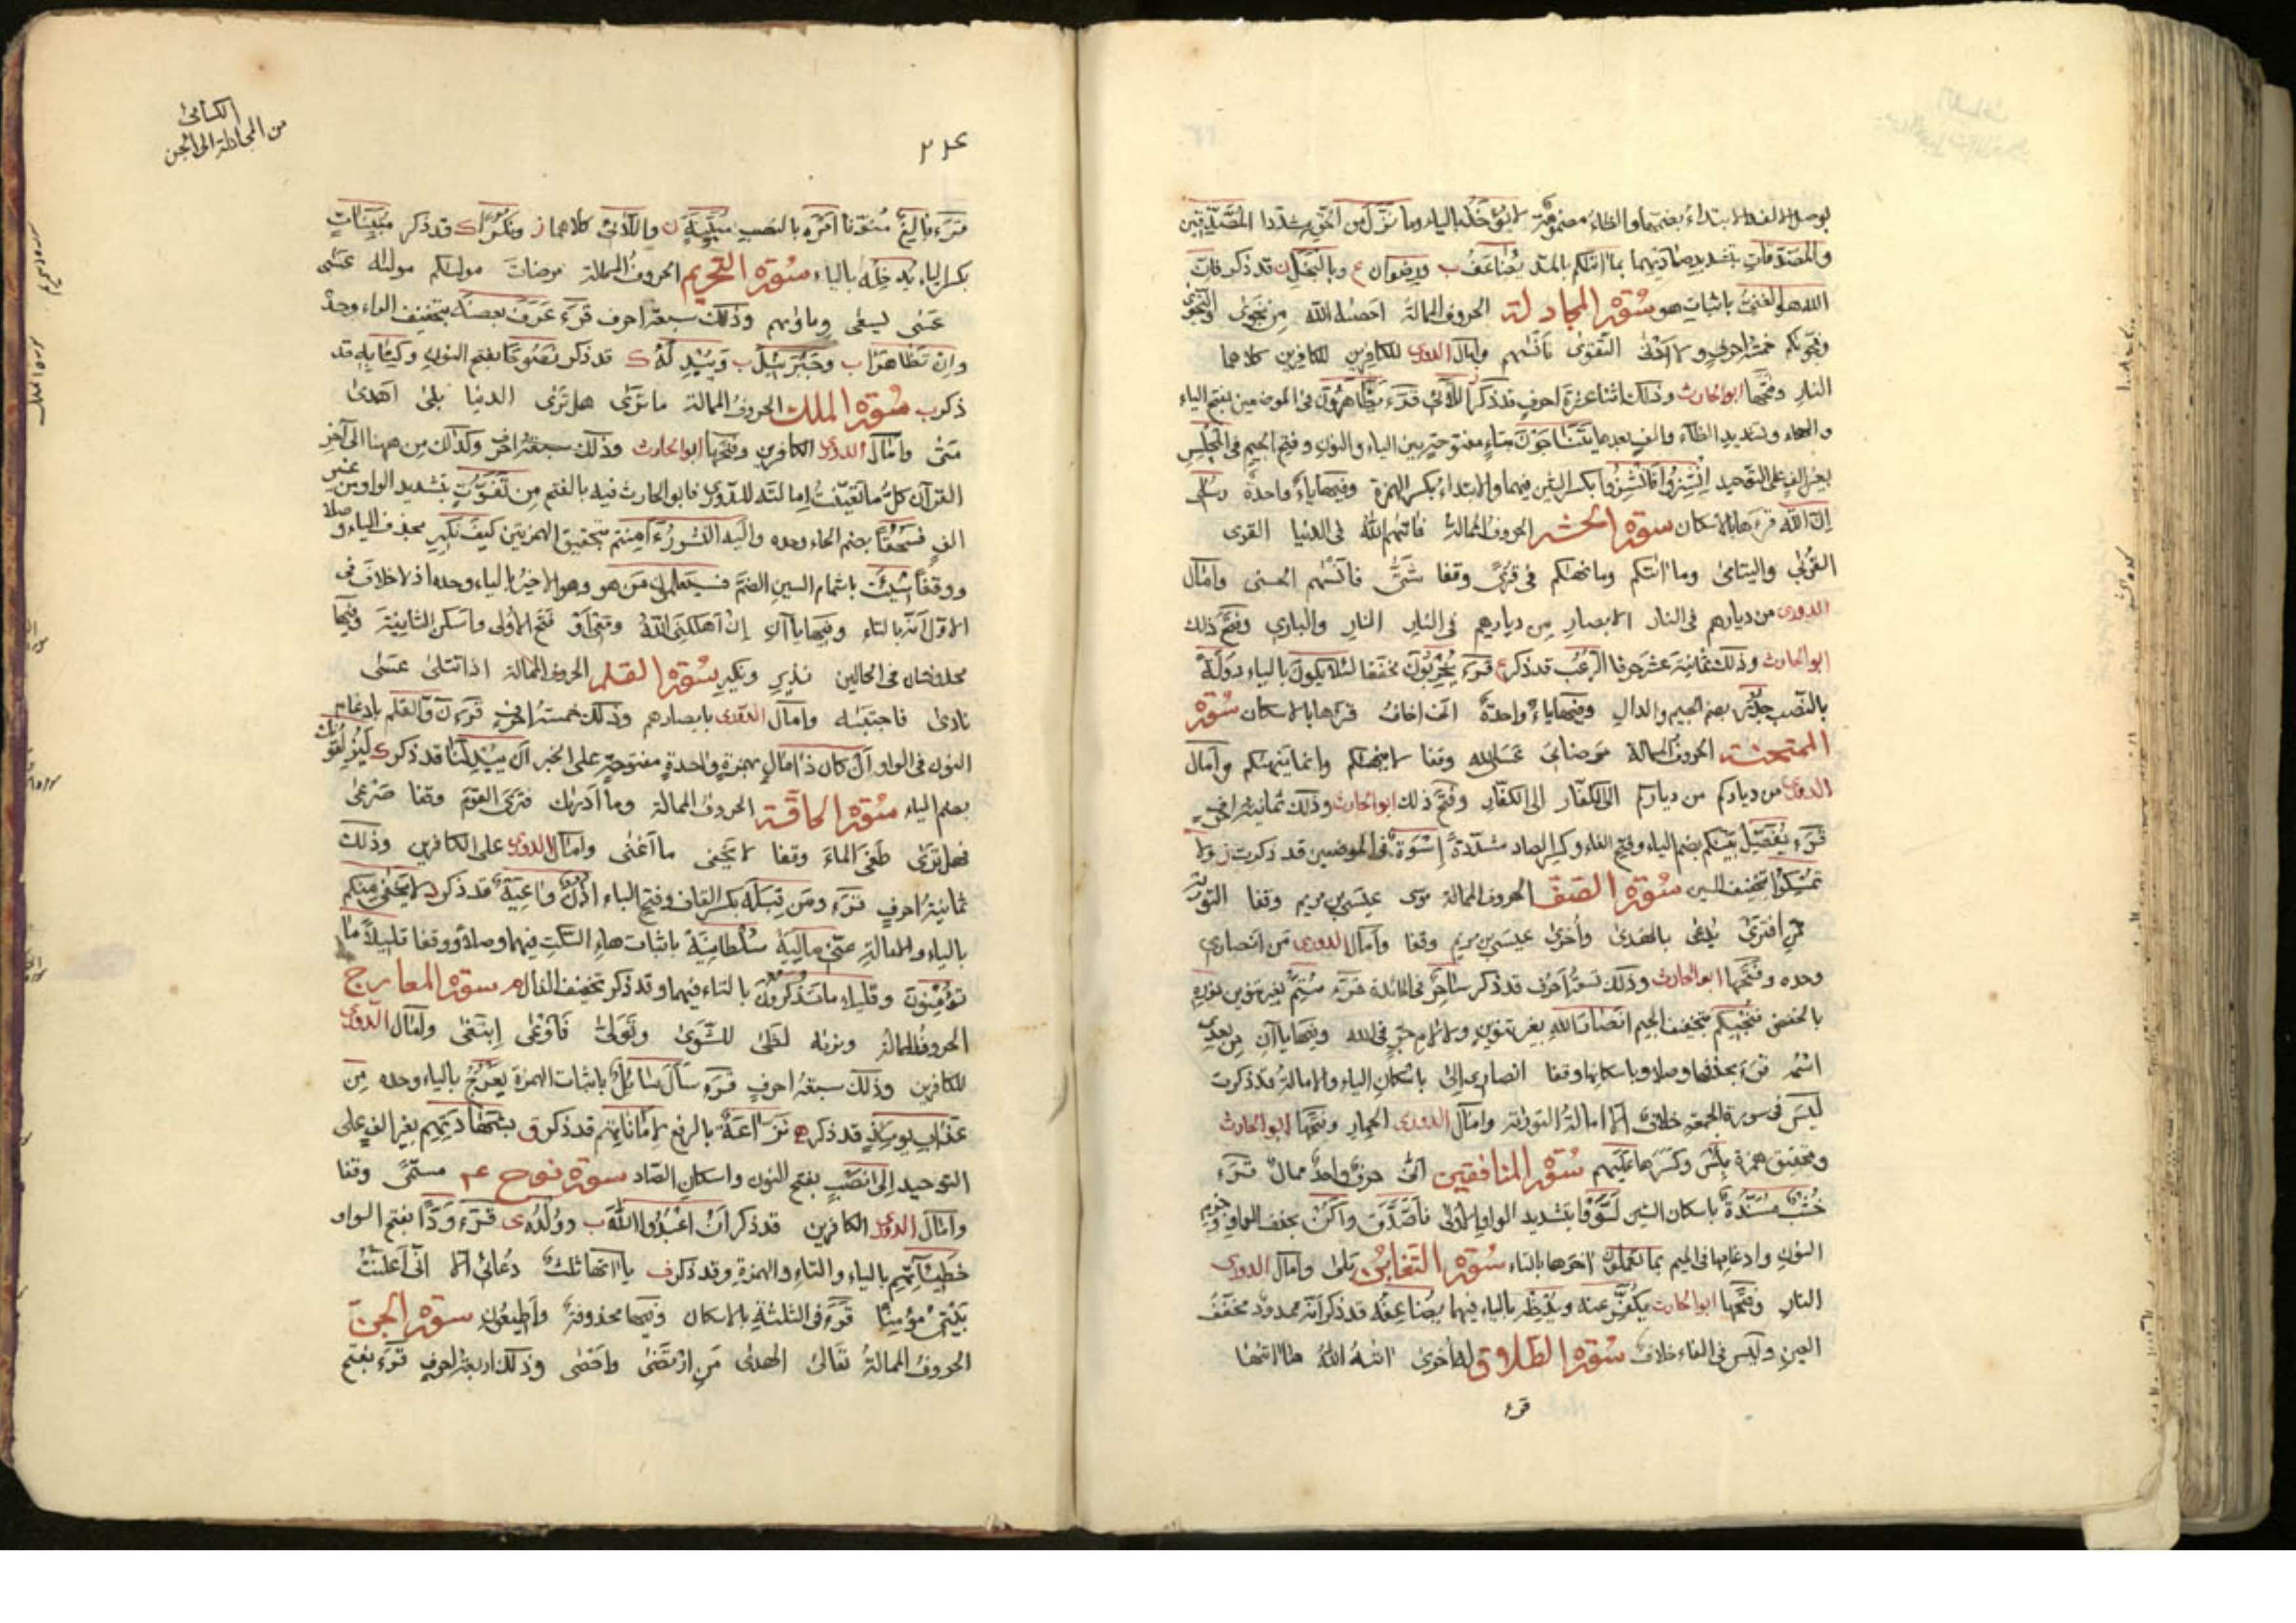 بوصل الالف والابتداء بضمها والظاء مضمومة لا يؤخذ بالياء وما نزل من الحق مشددا المصدقين
والمصدقات بتشديد صاديهما بما اتيكم بالمد يضاعف ب ورضوان ع وبالبخل ن قد ذكر فان
الله هو الغني باثبات هو سورة المجادلة الحروف الممالة احصيه الله من نجوى النجوى
ونجويكم خمسة احرف ولا ادنى التقوى فانسيهم وامال الدوري للكافرين للكافرين كلاهما
النار وفتحها ابو الحارث وذلك اثنا عشرة احرف قد ذكر اللائي قرء يظاهرون في الموضعين بفتح الياء
والهاء وتشديد الظاء والف بعدها يتناجون بتاء مفتوحة بين الياء والنون وفتح الجيم في المجلس
بغير الف على التوحيد انشزوا فانشزوا بكسر الشين فيهما والابتداء بكسر الهمزة وفيها ياء واحدة ورسلي
ان الله قرءها بالاسكان سورة الحشر الحروف الممالة فاتيهم الله في الدنيا القرى
القربى واليتامى وما اتيكم وما نهيكم في قرى وقفا شتى فانسيهم الحسنى وامال
الدوري من ديارهم في النار الابصار من ديارهم في النار النار والباري وفتح ذلك
ابو الحارث وذلك ثمانية عشر حرفا الرعب قد ذكر ع قرء يخربون مخففا لئلا يكون بالياء دولة
بالنصب جدر بضم الجيم والدال وفيها ياء واحدة اني اخاف قرءها بالاسكان سورة
الممتحنة الحروف الممالة مرضاتي عسى الله وقفا لا ينهيكم وانما ينهيكم وامال
الدوري من دياركم من دياركم الى الكفار الى الكفار وفتح ذلك ابو الحارث وذلك ثمانية احرف
قرء يفصل بينكم بضم الياء وفتح الفاء وكسر الصاد مشددة اسوة في الموضعين قد ذكرت ن ولا
تمسكوا بتخفيف السين سورة الصف الحروف الممالة موسى عيسى بن مريم وقفا التورية
من افترى يدعى بالهدى واخرى عيسى بن مريم وقفا وامال الدوري من انصاري
وحده وفتحها ابو الحارث وذلك تسعة احرف قد ذكر ساحر في المائدة قرء متم بغير تنوين نوره
بالخفض تنجيكم بتخفيف الجيم انصار الله بغير تنوين ولا لام جر في الله وفيها ياآن من بعدي
اسمه قرء بحذفها وصلا وباسكانها وقفا انصاري الى باسكان الياء والامالة قد ذكرت
ليس في سورة الجمعة خلاف الا امالة التورية وامال الدوري الحمار وفتحها ابو الحارث
وتحقيق همزة بئس وكسر هاء عليهم سورة المنافقين انى حرف واحد ممال قرء
خشب مسندة باسكان الشين لووا بتشديد الواو الاولى فاصدق واكن بحذف الواو وجزم
النون وادغامها في الميم بما تعملون اخرها بالتاء سورة التغابن بلى وامال الدوري
النار وفتحها ابو الحارث يكفر عنه ويدخله بالياء فيهما يضاعفه قد ذكر انه ممدود مخفف
العين وليس في الفاء خلاف سورة الطلاق له اخرى اتيه الله ما اتيها
قرء
الكسائي
من المجادلة الى الجن
قرء بالغ منونا امره بالنصب مبينة ن واللائي كلاهما ز ونكرا ك قد ذكر مبينات
بكسر الياء يدخله بالياء سورة التحريم الحروف الممالة مرضات موليكم موليه عسى
عسى يسعى وماويهم وذلك سبعة احرف قرء عرف بعضه بتخفيف الراء وحده
وان تظاهرا ب وجبرئيل ب ويبدله ك قد ذكر نصوحا بفتح النون وكتابه قد
ذكر ب سورة الملك الحروف الممالة ما ترى هل ترى الدنيا بلى اهدى
متى وامال الدوري الكافرين وفتحها ابو الحارث وذلك سبعة احرف وكذلك من ههنا الى آخر
القرآن كل ما تعينت امالته للدوري فابو الحارث فيه بالفتح من تفوت بتشديد الواو من غير
الف فسحقا بضم الحاء وحده واليه النشور ءامنتم بتحقيق الهمزتين كيف نكير بحذف الياء وصلا
ووقفا سيئت باشمام السين الضم فسيعلمون من هو وهو الاخير بالياء وحده اذ لا خلاف في
الاول انه بالتاء وفيها ياآن ان اهلكني الله ومعي او فتح الاولى واسكن الثانية وفيها
محذوفتان في الحالين نذير ونكير سورة القلم الحروف الممالة اذا تتلى عسى
نادى فاجتبيه وامال الدوري بابصارهم وذلك خمسة احرف قرء ن والقلم بادغام
النون في الواو ان كان ذا مال بهمزة واحدة مفتوحة على الخبر ان يبدلنا قد ذكر ك ليزلقونك
بضم الياء سورة الحاقة الحروف الممالة وما ادريك فترى القوم وقفا صرعى
فهل ترى طغى الماء وقفا لا يخفى ما اغنى وامال الدوري على الكافرين وذلك
ثمانية احرف قرء ومن قبله بكسر القاف وفتح الباء اذن واعية قد ذكر د لا يخفى منكم
بالياء والامالة عني ماليه سلطانيه باثبات هاء السكت فيهما وصلا ووقفا قليلا ما
تؤمنون وقليلا ما تذكرون بالتاء فيهما وقد ذكر تخفيف الذال م سورة المعارج
الحروف الممالة ونريه لظى للشوى وتولى فاوعى ابتغى وامال الدوري
للكافرين وذلك سبعة احرف قرء سال سائل باثبات الهمزة يعرج بالياء وحده من
عذاب يومئذ قد ذكر ه نزاعة بالرفع لاماناتهم قد ذكر ق بشهادتهم بغير الف على
التوحيد الى نصب بفتح النون واسكان الصاد سورة نوح عم مسمى وقفا
وامال الدوري الكافرين قد ذكر ان اعبدوا الله ب وولده ى قرء ودا بفتح الواو
خطيئاتهم بالياء والتاء والهمزة وقد ذكر ف ياآتها ثلث دعائي الا اني اعلنت
بيتي مؤمنا قرء في الثلثة بالاسكان وفيها محذوفة واطيعون سورة الجن
الحروف الممالة تعالى الهدى من ارتضى واحصى وذلك اربعة احرف قرء بفتح